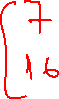 7
16